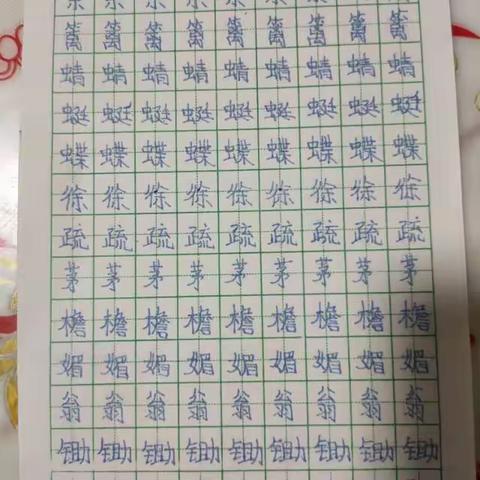 篱篱篱篱篱篱篱篱篱
蜻蜻蜻蜻蜻蜻蜻蜻蜻
蜓蜓蜓蜓蜓蜓蜓蜓蜓
蝶蝶蝶蝶蝶蝶蝶蝶蝶
徐徐徐徐徐徐徐徐徐
疏疏疏疏疏疏疏疏疏
茅茅茅茅茅茅茅茅茅
檐檐檐檐檐檐檐檐檐
媚媚媚媚媚媚媚媚媚
翁翁翁翁翁翁翁翁翁
锄锄锄锄锄锄锄锄锄